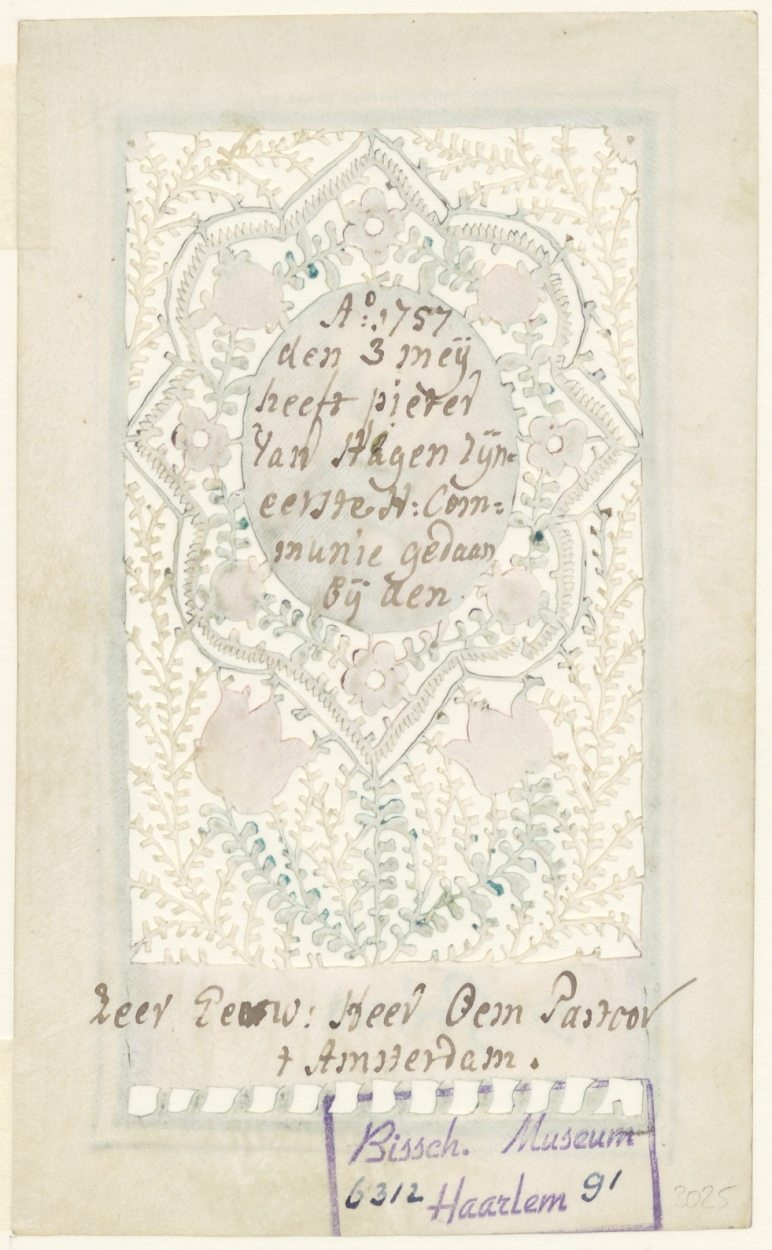 Aº: 1757
den 3 meÿ
heeft pieter
Van Hagen zÿn=
eerste H: Com=
munie gedaan
bÿ den
Zeer Eeuw: Heer Oem Pastoor
t Amsterdam.
Bissch. Museum
6312 Haarlem 91
3025